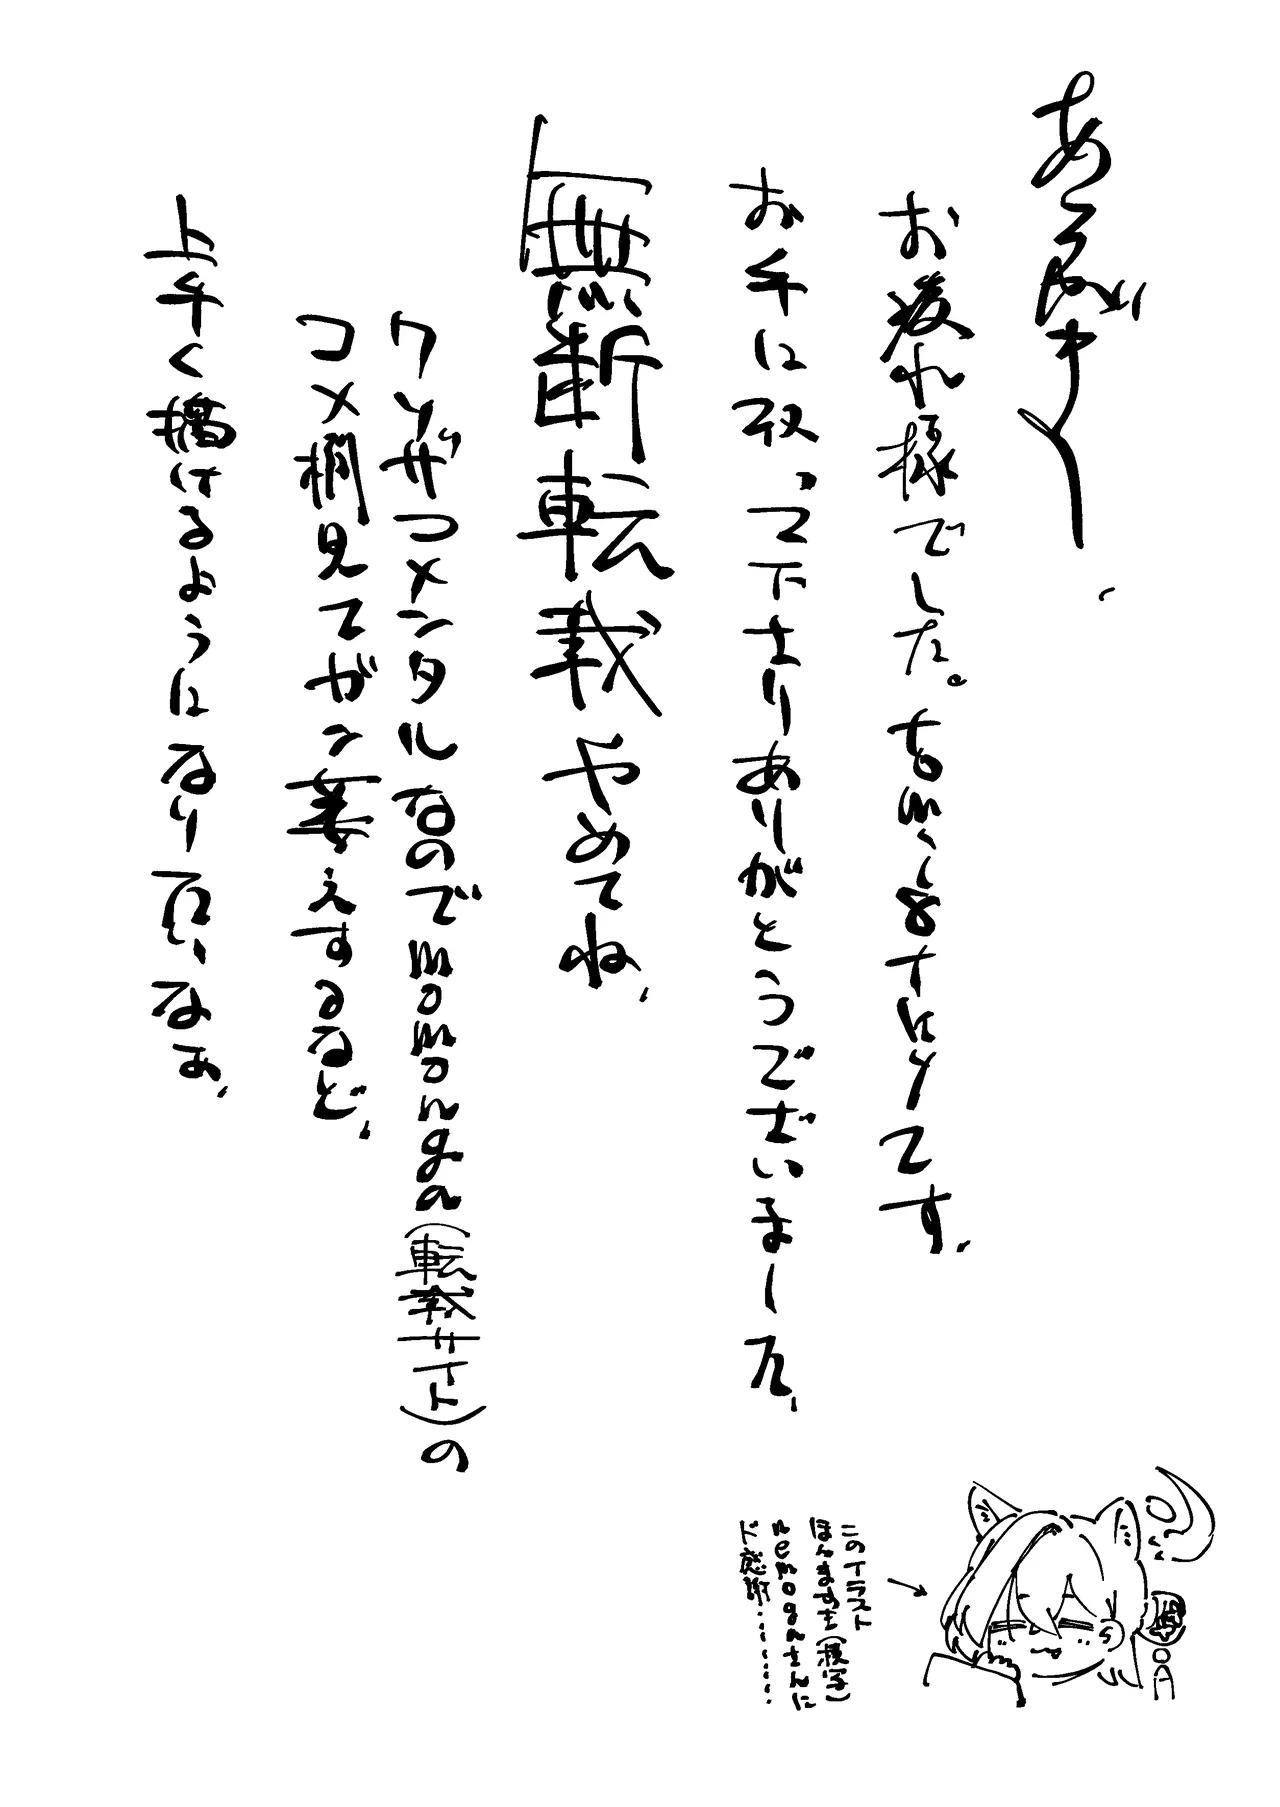 あとがき
お疲れ様でした。
です。
お手に取って下さりありがとうございました、
無断転載やめてね、
クソザコメンタルなのでmomonga(転載サイト)の
コメ欄見てガン萎えするなど、
上手く描けるようになりてぃなぁ、
このイラスト
ほんますき(模写)
nemogaさんに
ド感謝